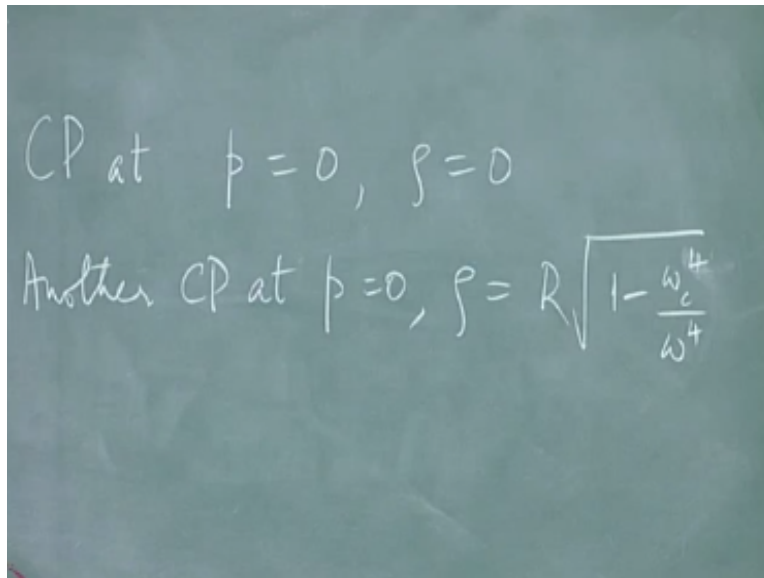 CP at p = 0, ρ = 0
Another CP at p = 0, ρ = R√(1 - ω_c^4/ω^4)